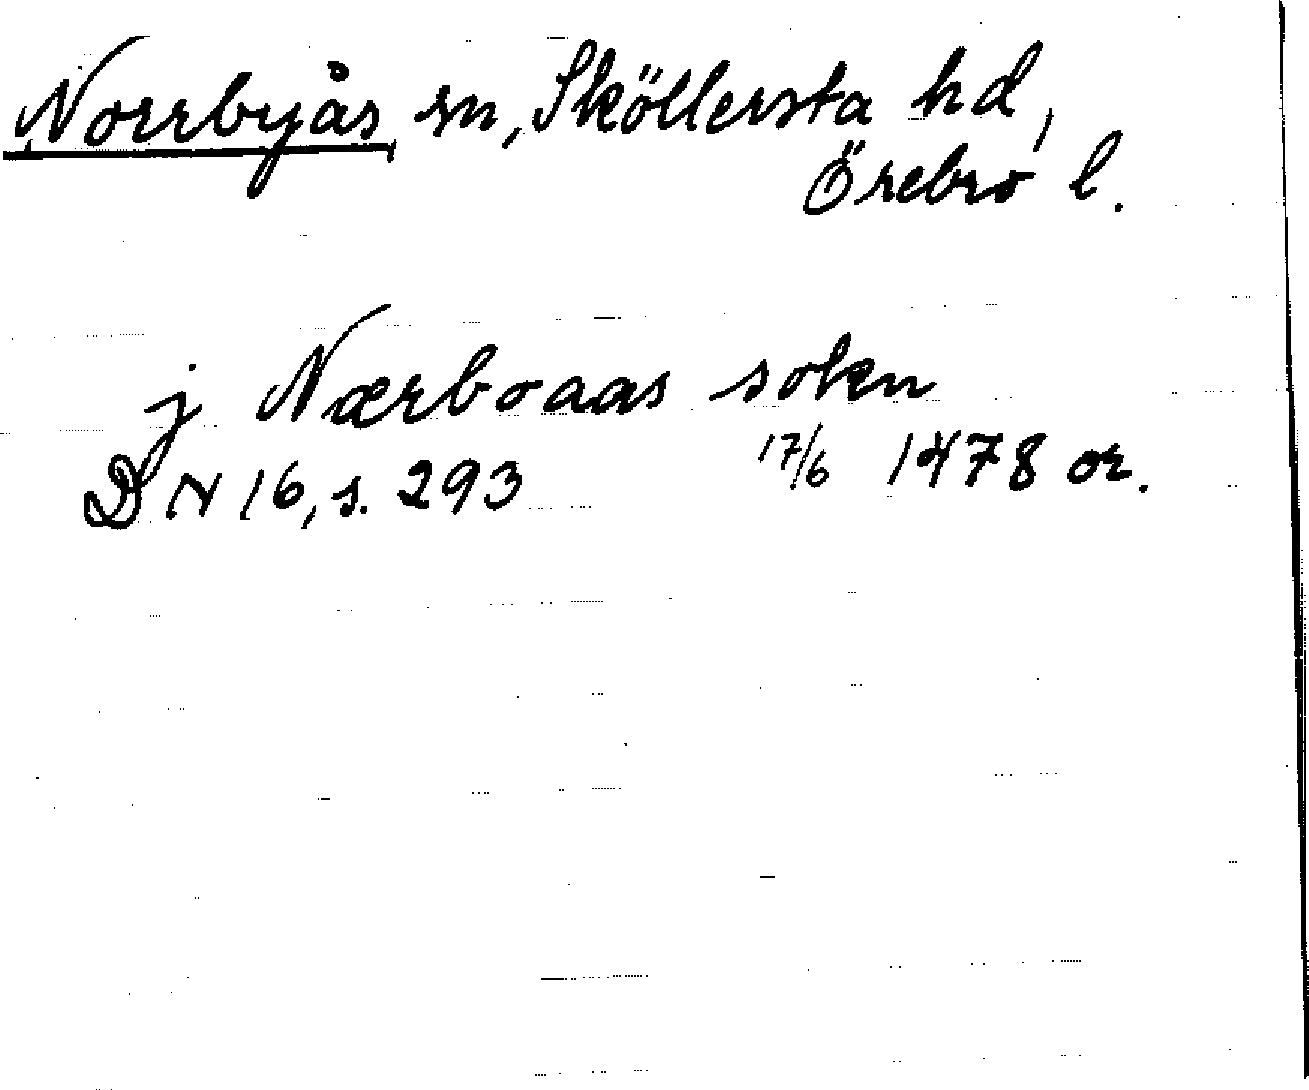 Norrbyås sn, Sköllersta hd,
Örebro l.
j Nærboaas sokn
DN 16, s. 293 17/6 1478 or.